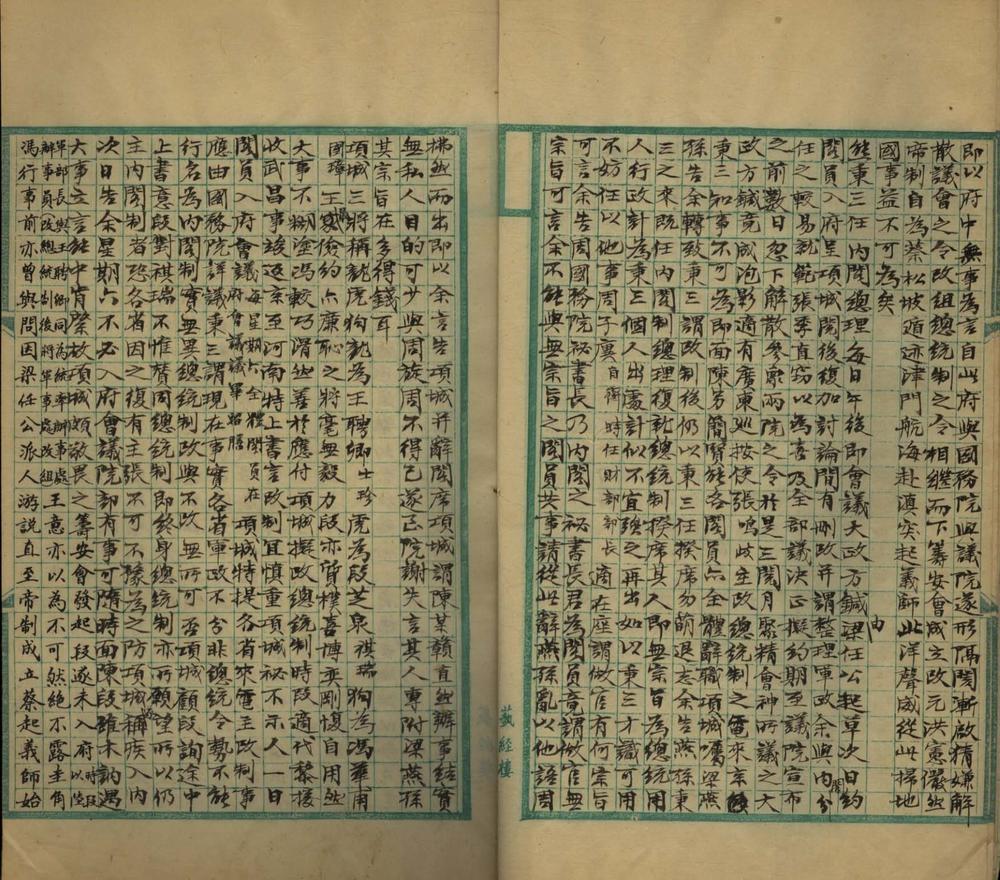 即以府中無事為言自此府與國務院與議院遂形隔閡漸啟精嫌解
散議會之令改組總統制之令相繼而下籌安會成立改元洪憲儼然
帝制自為蔡松坡遁迹津門航海赴滇突起義師北洋聲威從此掃地
國事益不可為矣
熊秉三任內閣總理每日午後即會議大政方鍼由梁任公起草次日約
閣員入府呈項城閱後復加討論間有刪改并謂整理軍政余與內閣分
任之較易就範張季直竊以為喜及全部議決正擬約期至議院宣布
之前數日忽下解散參眾兩院之令於是三閱月聚精會神所議之大
政方鍼竟成泡影適有廣東巡按使張鳴歧主改總統制之電來京
秉三知事不可為即面陳另簡賢能各閣員亦全體辭職項城囑梁燕
孫告余轉致秉三謂改制後仍以秉三任揆席勿萌退志余告燕孫秉
三之來既任內閣制總理復新總統制揆席其人即無宗旨為總統
人行政計為秉三個人出處計似不宜強之再出如以秉三才識可用
不妨任以他事周子廙自齊時任財部部長適在座謂做官有何宗旨
可言余告周國務院祕書長乃內閣之祕書長君為閣員竟謂做官無
宗旨可言余不能與無宗旨之閣員共事請從此辭燕孫亂以他語周
拂然而出即以余言告項城并辭閣席項城謂陳某贛直然辦事結實
無私人目的可少與周旋周不得已遂已院謝失言其人專附梁燕孫
其宗旨在多得錢耳
項城三將稱龍虎狗龍為王聘卿士珍虎為段芝泉祺瑞狗為馮華甫
國璋王儉約亦廉恥之將毫無毅力段亦質樸喜博弈剛愎自用然
大事不糊塗馮較巧滑然善於應付項城擬改總統制時段適代黎接
收武昌事竣返京至河南時上書言改制宜慎重項城祕不示人一日
閣員入府會議每星期六全體閣員在府會議議畢留膳項城特提各省來電主改制事
應由國務院詳議秉三謂現在事實各省軍政不分非總統令勢不能
行名為內閣制實無異總統制改與不改無所可否項城顧段詢途中
上書意段對祺瑞不惟贊同總統制即終身總統制亦所願望所以仍
主內閣制者恐各省因之復有主張不可不豫為之防項城稱疾入內
次日告余星期六不必入府會議院部有事可隨時面陳段雖木訥遇
大事立言能中肯綮故項城頗敬畏之籌安會發起段遂未入府時段以陸
軍部長與王聘卿同為統率辦事處
辦事員改總統制後將軍事處改組王意亦以為不可然絕不露圭角
馮行事前亦曾與問因梁任公派人游說直至帝制成立蔡起義師始
荻經樓